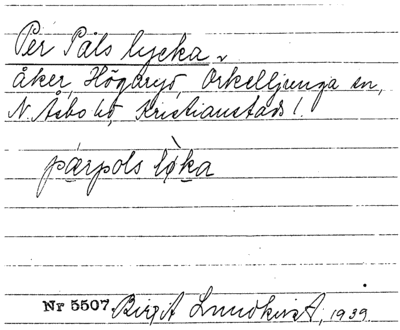 Per Påls lycka
åker, Högaryd, Örkelljunga sn,
N. Åsbo hd, Kristianstads l.
pærpols lø̀ka
Nr 5507. Birgit Lundkvist, 1939